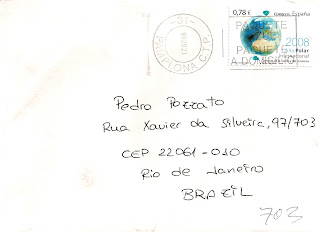 0,78 €
Correos. España
-01-
PAMPLONA C.T.P.
PAQUETE
2008
Año Polar
Internacional
PAQUE
A DOMI
Pedro Pozzato
Rua Xavier da Silveira, 97/703
CEP 22061-010
Rio de Janeiro
BRAZIL
703